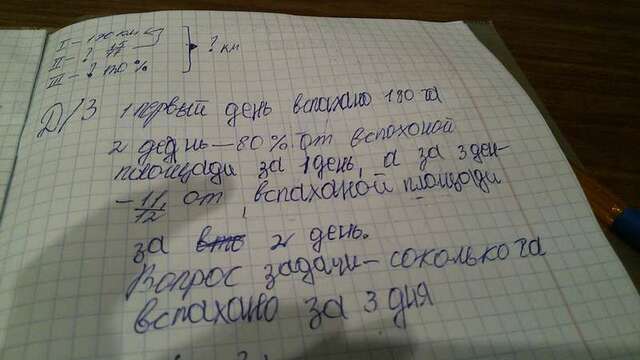 I - 170 км
II - ?
III - ? 130 %
? км
Д/З 1 первый день вспахано 180 га
2 деднь - 80% от вспоханой
площади за 1 день, а за 3 ден-
- 11/12 от вспаханой площади
за 2 день.
Вопрос задачи - соколько га
вспахано за 3 дня